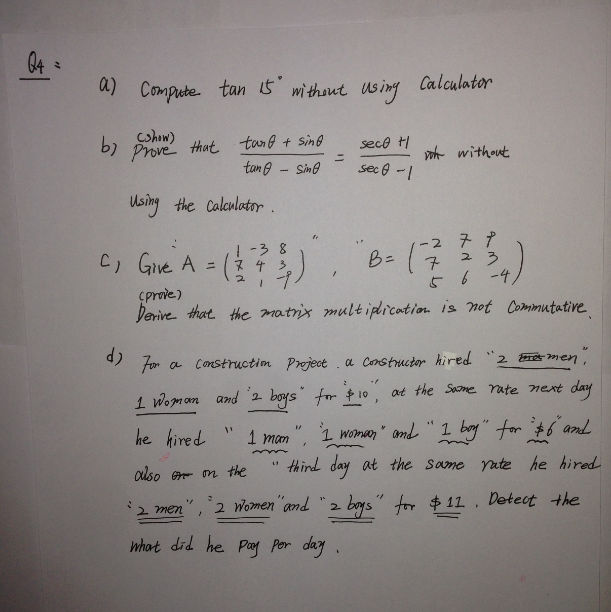 Q4 =
a) Compute tan 15° without using Calculator
(show)
b) Prove that (tanθ + sinθ)/(tanθ - sinθ) = (secθ +1)/(secθ -1) without
using the calculator.
c) Give A = (1 -3 8; 7 4 3; 2 1 -9)", "B = (-2 7 9; 7 2 3; 5 6 -4)
(prove)
Derive that the matrix multiplication is not Commutative.
d) For a construction Project. a Constructor hired "2 men",
1 woman and "2 boys" for "$10", at the same rate next day
he hired "1 man", "1 woman" and "1 boy" for "$6" and
also on the "third day at the same rate he hired
"2 men", "2 women" and "2 boys" for $11. Detect the
what did he pay per day.